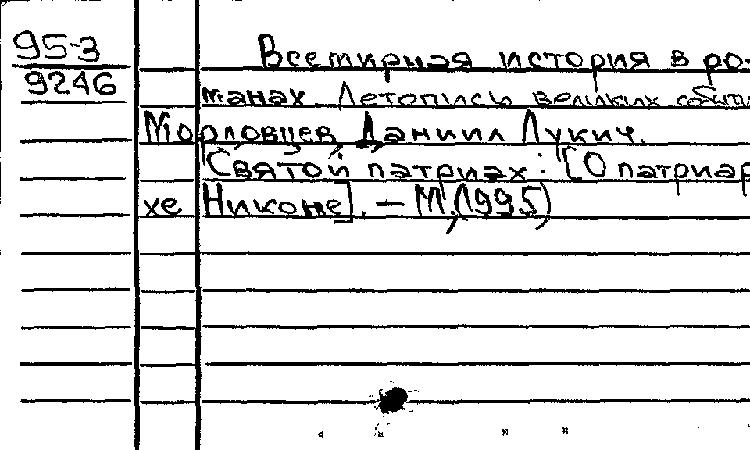 95-3
9246
Всемирная история в ро-
манах. Летопись великих событи
Мордовцев, Даниил Лукич.
Святой патриах: [О патриар
хе Никоне]. – М., 1995)